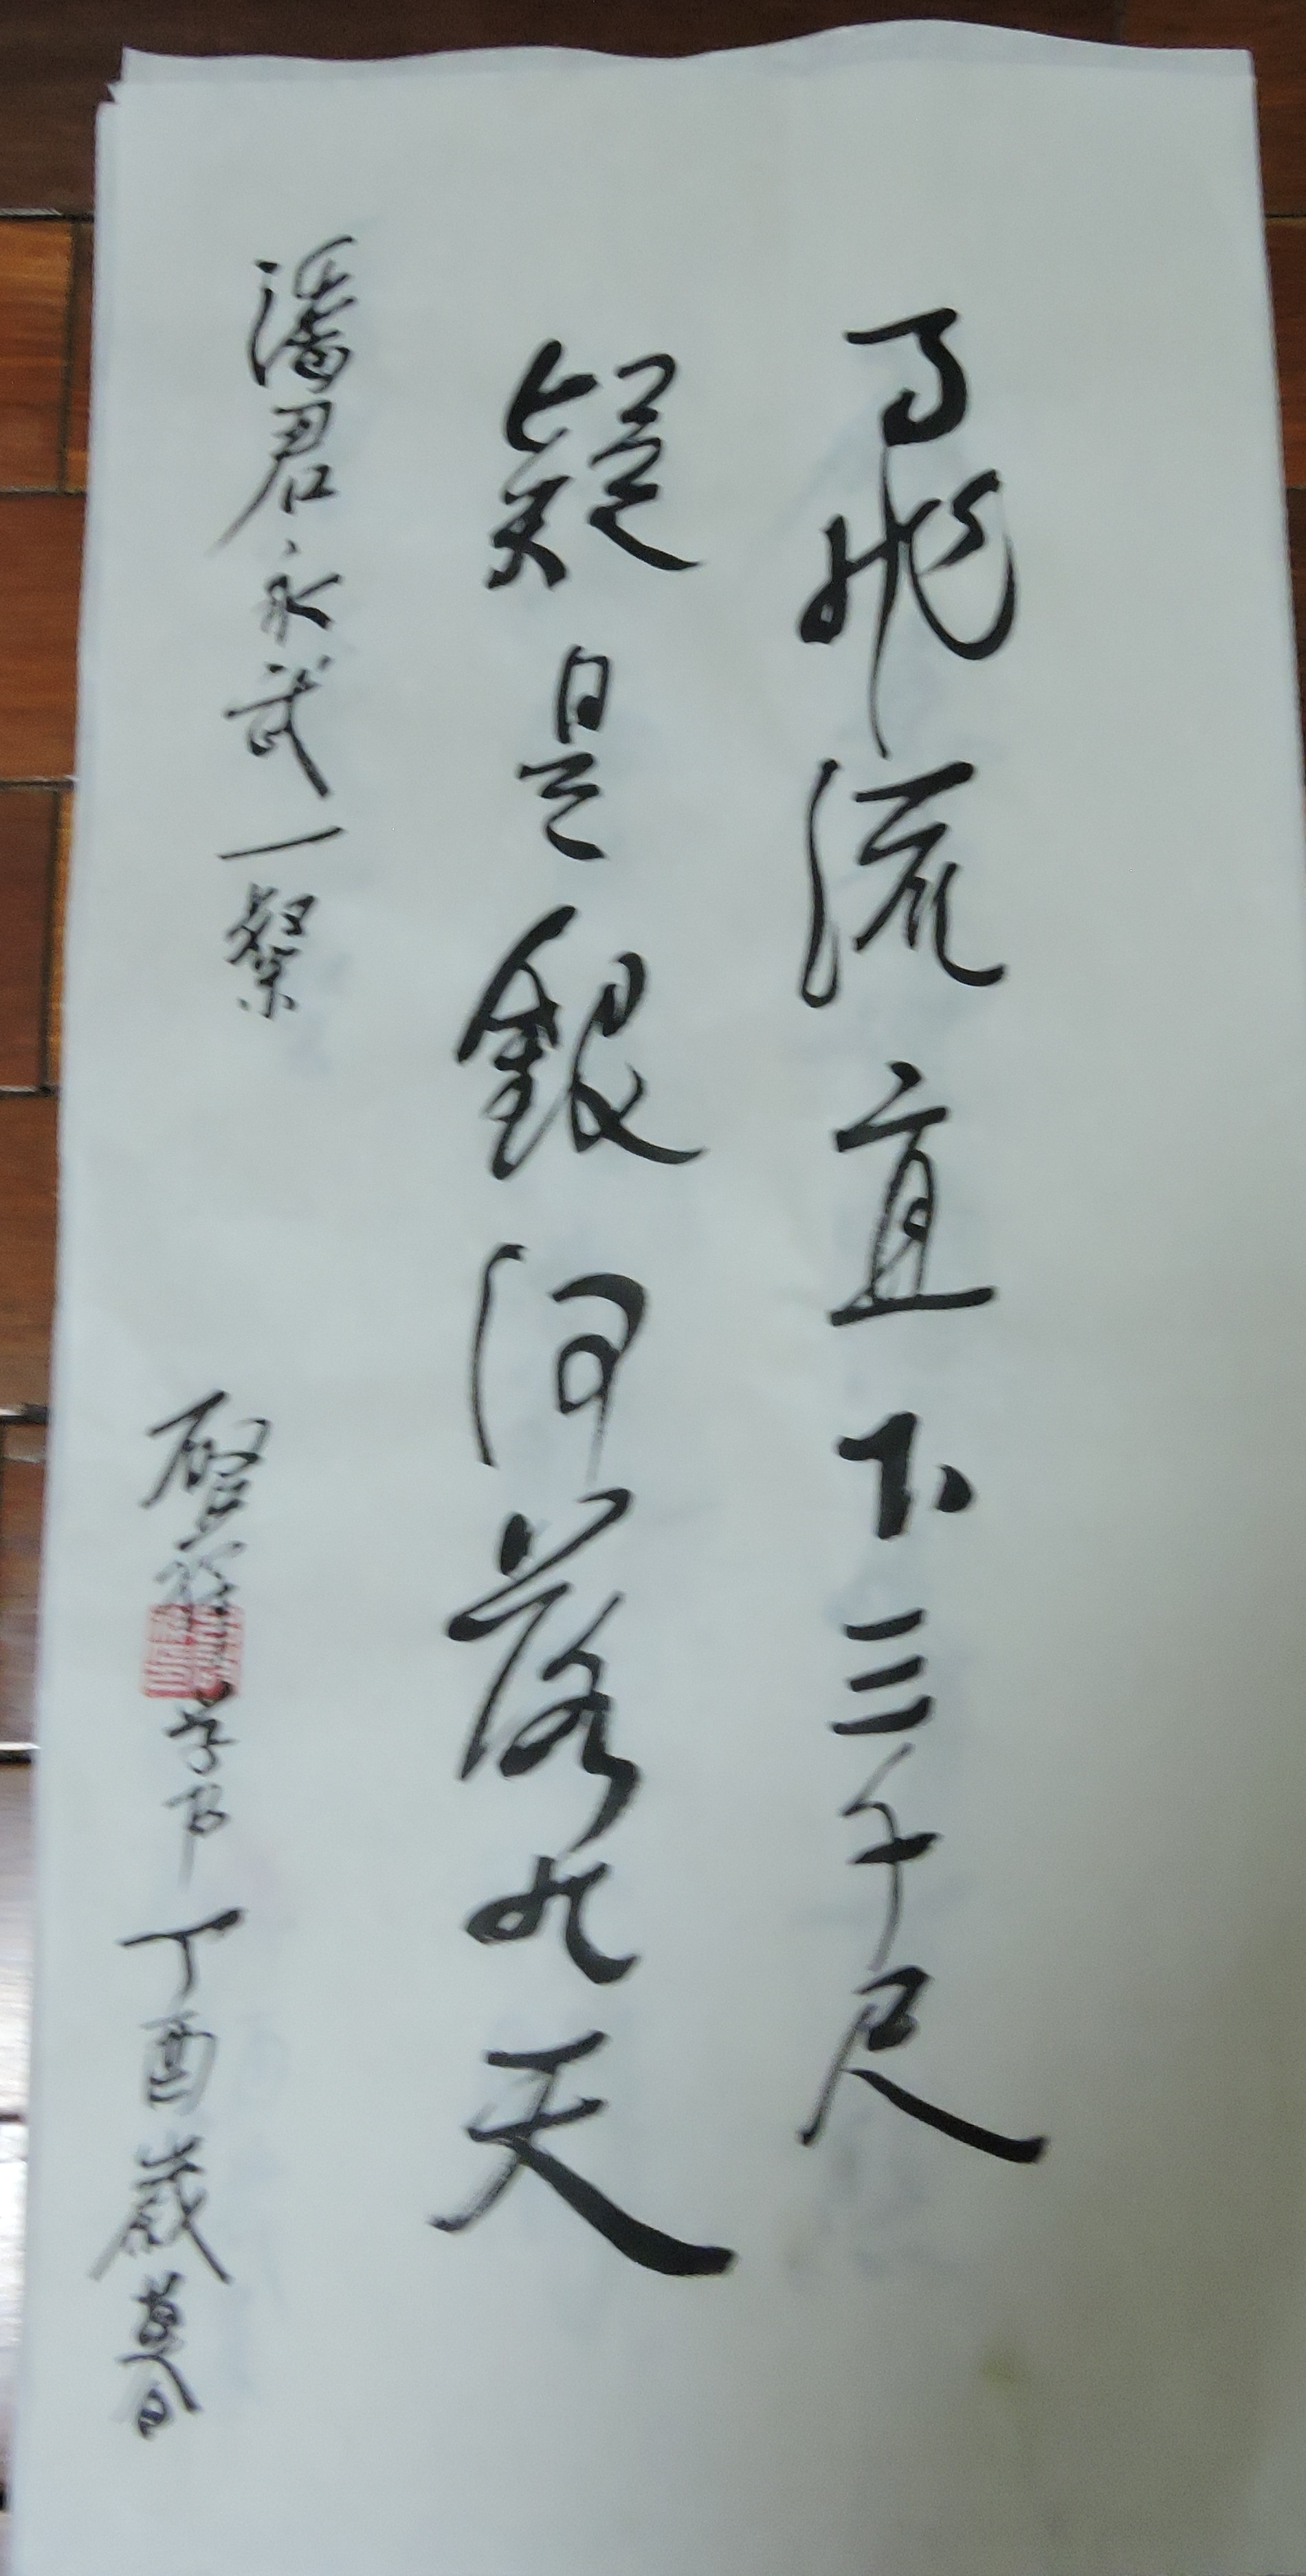 飛流直下三千尺
疑是銀河落九天
潘君永武一粲
啓祥學书丁酉歲暮